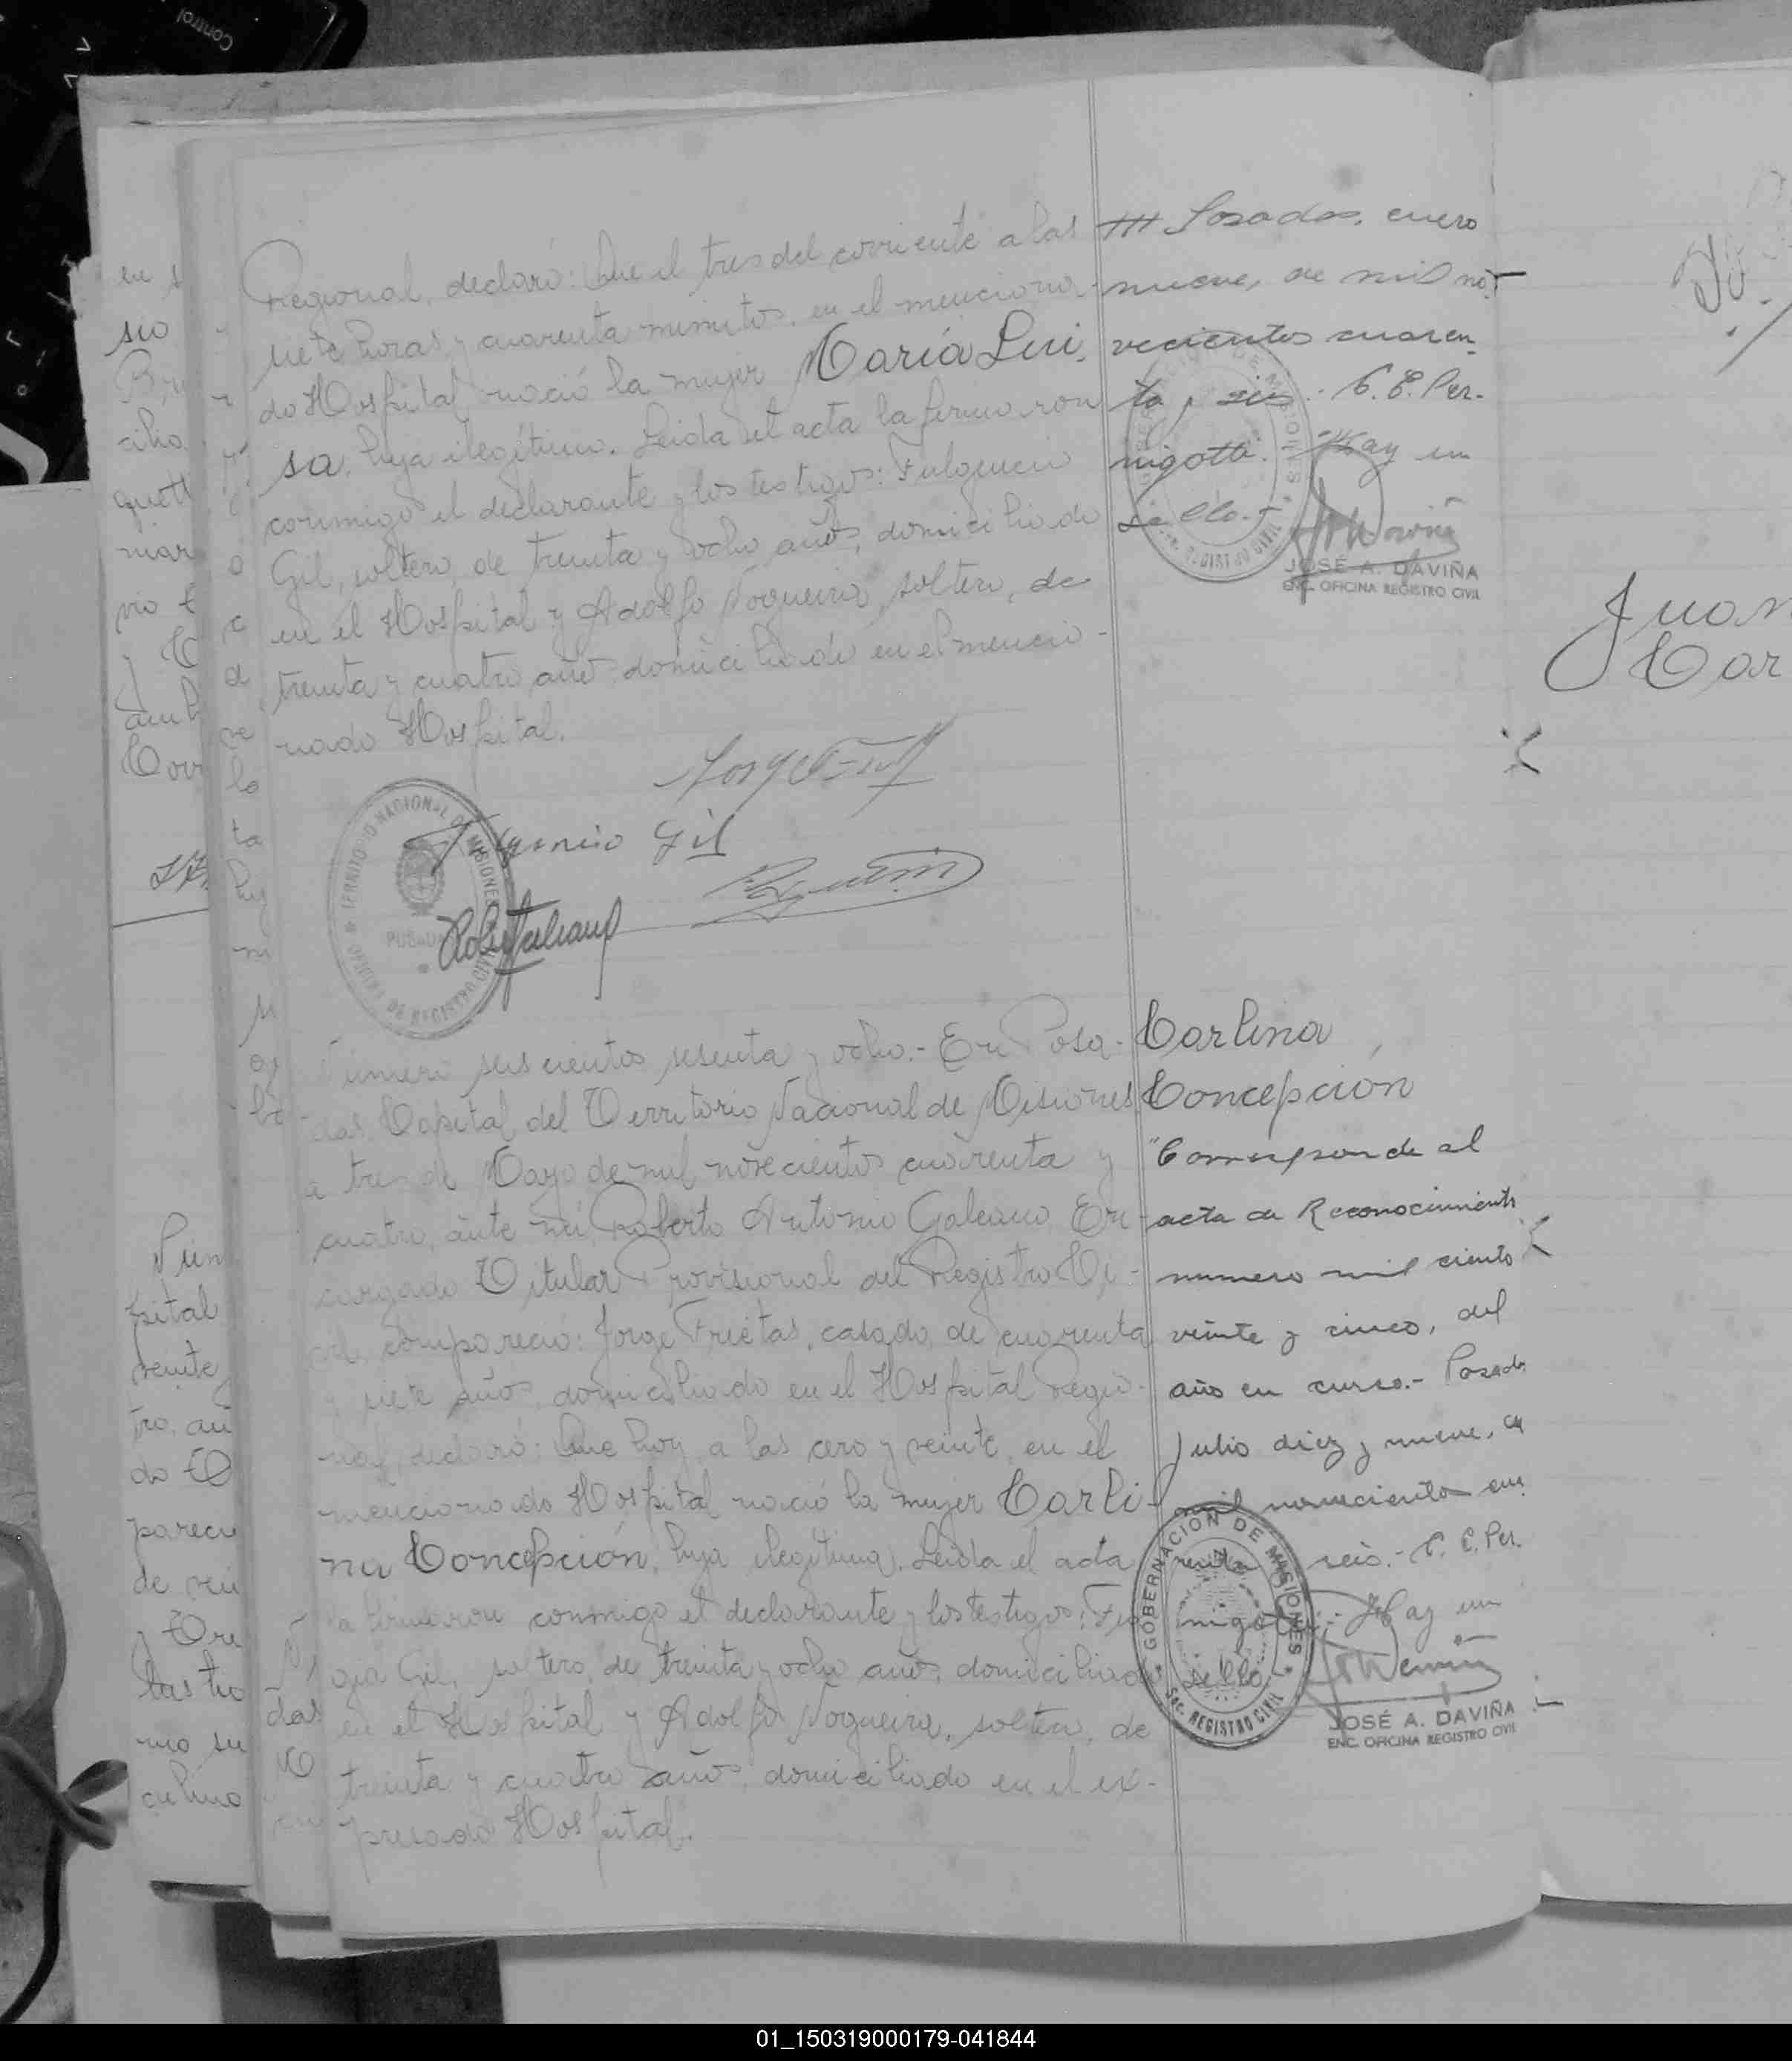 Regional, declaró: Que el tres del corriente a las
siete horas y cuarenta minutos, en el menciona-
do Hospital nació la mujer María Lui-
sa, hija ilegítima. Leida el acta la firmaron
conmigo el declarante y los testigos: Fulgencio
Gil, soltero, de treinta y ocho años, domiciliado
en el Hospital y Adolfo Nogueira, soltero, de
treinta y cuatro años domiciliado en el mencio-
nado Hospital.
Posadas, enero
nueve, de mil no-
vecientos cuaren-
ta y seis.- C. E. Per-
nigotti.- Hay un
sello.-
JOSÉ A. DAVIÑA
ENC. OFICINA REGISTRO CIVIL
Gil
TERRITORIO NACIONAL DE MISIONES
POSADAS
OFICINA DE REGISTRO CIVIL
Número seiscientos sesenta y ocho.- En Posa-
das, Capital del Territorio Nacional de Misiones
a tres de Mayo de mil novecientos cuarenta y
cuatro, ante mí, Roberto Antonio Galeano, En-
cargado Titular Provisional del Registro Ci-
vil, compareció: Jorge Frietas, casado, de cuarenta
y siete años, domiciliado en el Hospital Regio-
nal, declaró: Que hoy a las cero y veinte, en el
mencionado Hospital nació la mujer Carli-
na Concepción, hija ilegítima. Leida el acta
la firmaron conmigo el declarante y los testigos: Ful
Gil, soltero, de treinta y ocho años, domiciliado
en el Hospital y Adolfo Nogueira, soltero, de
treinta y cuatro años, domiciliado en el ex-
presado Hospital.
Carlina
Concepción
"Corresponde al
acta de Reconocimiento
numero mil ciento
veinte y cinco, del
año en curso.- Posadas
Julio diez y nueve, de
mil novecientos cua
renta seis.- C. E. Per.
nigotti.- Hay un
sello
GOBERNACION DE MISIONES
Sec. REGISTRO CIVIL
JOSÉ A. DAVIÑA
ENC. OFICINA REGISTRO CIVIL
Juan
Car
Control
01_150319000179-041844